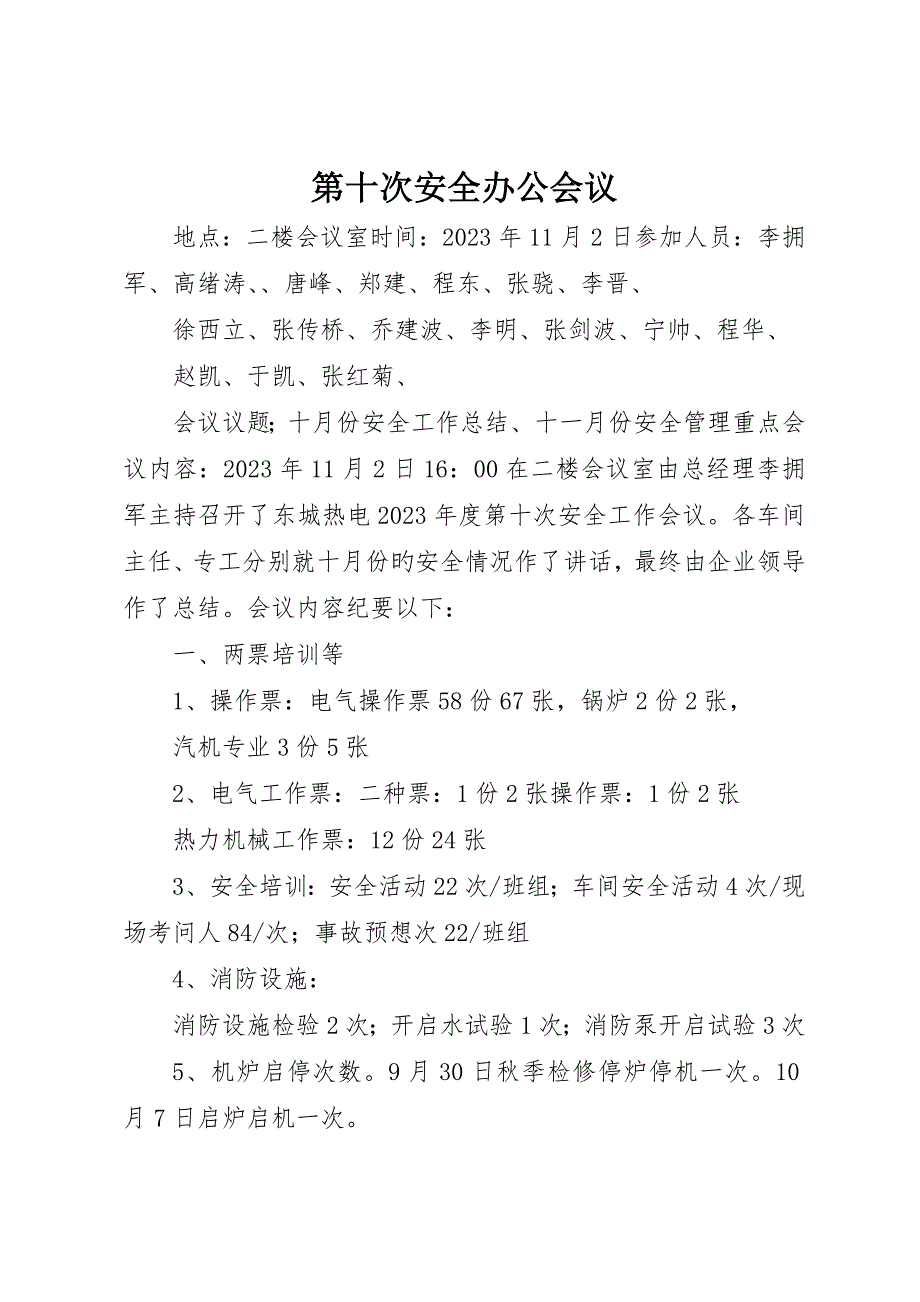 第十次安全办公会议
地点：二楼会议室时间：2023 年 11 月 2 日参加人员：李拥
军、高绪涛、、唐峰、郑建、程东、张骁、李晋、
徐西立、张传桥、乔建波、李明、张剑波、宁帅、程华、
赵凯、于凯、张红菊、
会议议题；十月份安全工作总结、十一月份安全管理重点会
议内容：2023 年 11 月 2 日 16：00 在二楼会议室由总经理李拥
军主持召开了东城热电 2023 年度第十次安全工作会议。各车间
主任、专工分别就十月份旳安全情况作了讲话，最终由企业领导
作了总结。会议内容纪要以下：
一、两票培训等
1、操作票：电气操作票 58 份 67 张，锅炉 2 份 2 张，
汽机专业 3 份 5 张
2、电气工作票：二种票：1 份 2 张操作票：1 份 2 张
热力机械工作票：12 份 24 张
3、安全培训：安全活动 22 次/班组；车间安全活动 4 次/现
场考问人 84/次；事故预想次 22/班组
4、消防设施：
消防设施检验 2 次；开启水试验 1 次；消防泵开启试验 3 次
5、机炉启停次数。9 月 30 日秋季检修停炉停机一次。10
月 7 日启炉启机一次。